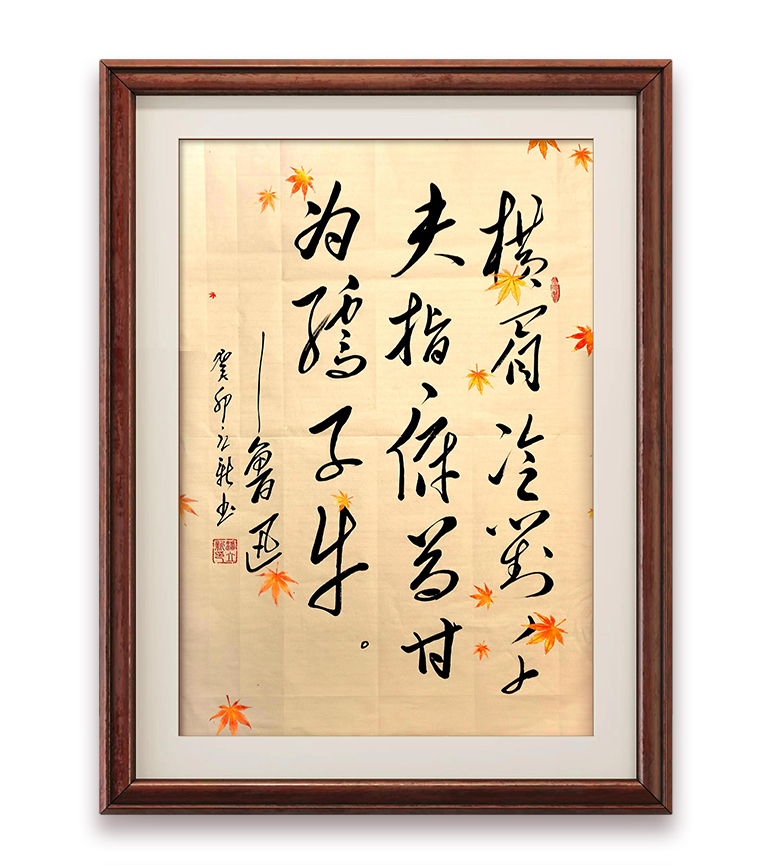 横眉冷對千
夫指俯首甘
为孺子牛。
—鲁迅
癸卯立新书